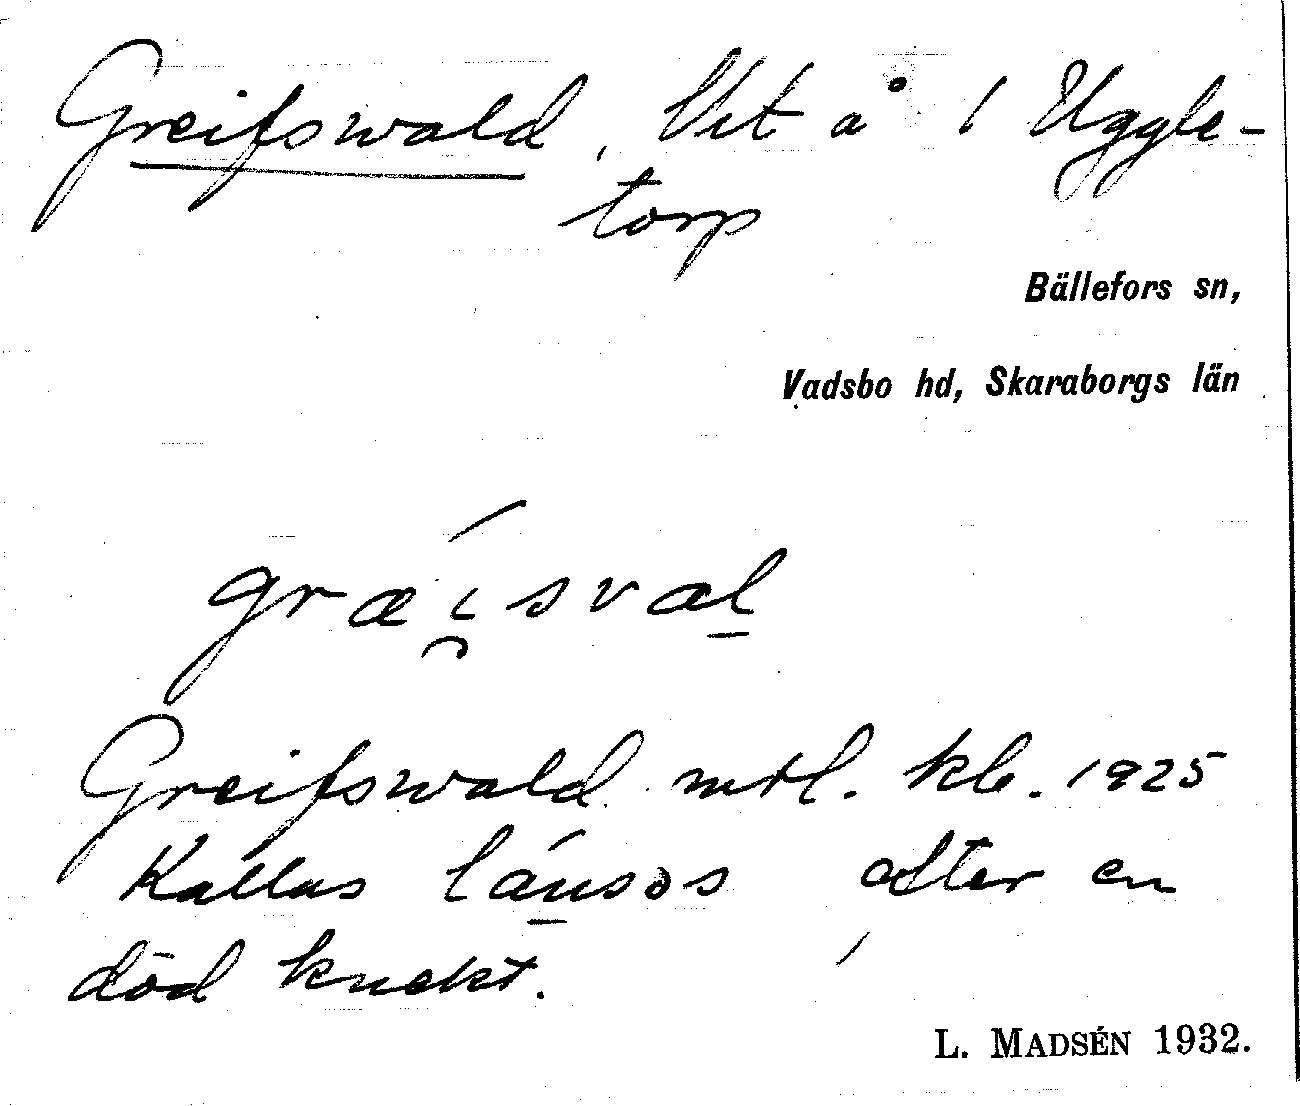 Greifswald, Ut å 1 Uggle-
torp
Bällefors sn,
Vadsbo hd, Skaraborgs län
græi̯´sval
Greifswald mtl. kb. 1925
Kallas lánsəs efter en
död knekt.
L. MADSÉN 1932.